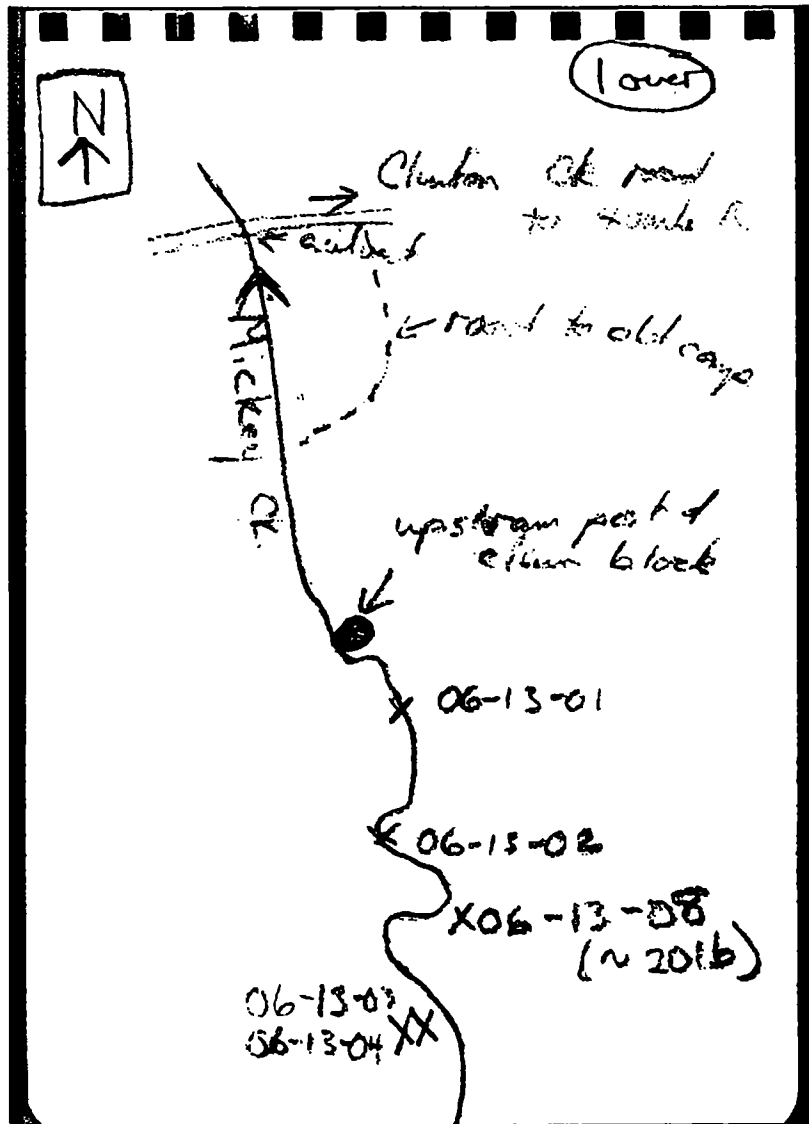 N
lower
Clinton Ck road
to
culvert
road to old camp
Mickey Ck.
upstream post of
claim block
06-13-01
06-13-02
X06-13-08
(~20lb)
06-13-03
06-13-04 XX